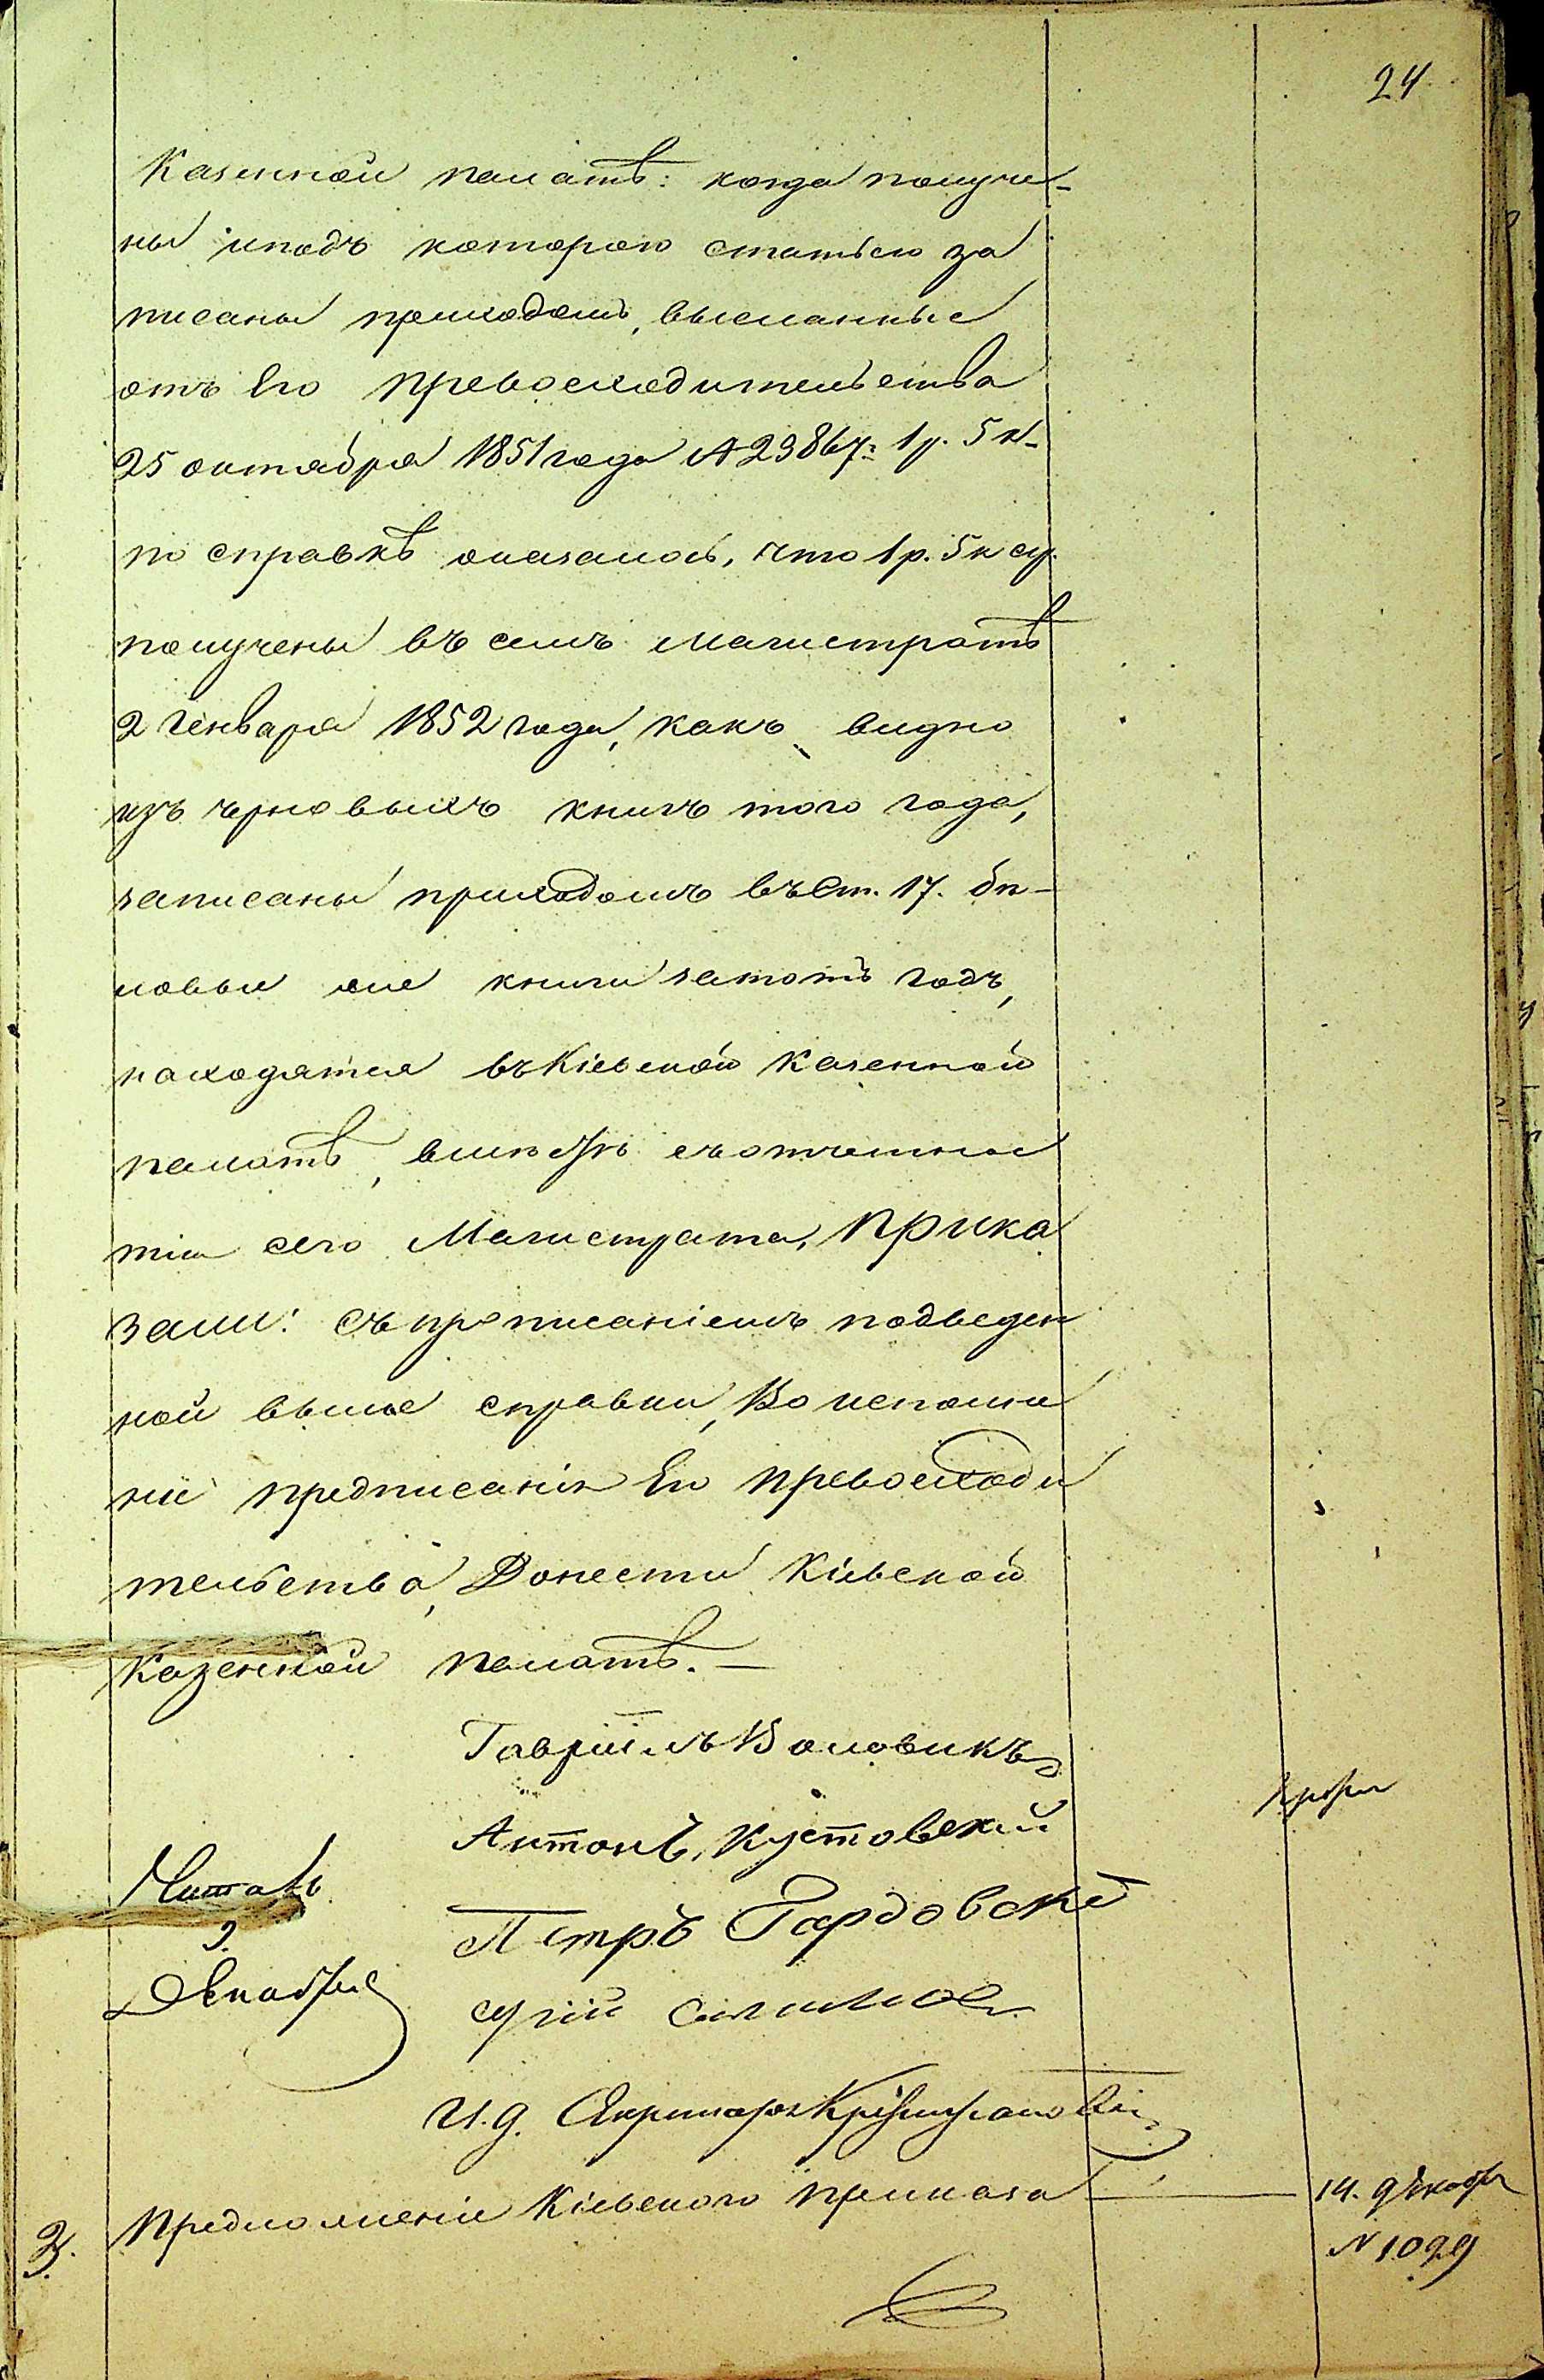 24
Казенной палатѣ: когда получе-
ны иподъ которою статьею за
писаны приходомъ, высланные
отъ Его Превосходительства
25 октября 1851 года № 23867: 1 р. 5 к-
по справкѣ оказалось, что 1 р. 5 к ср.
получены въ семъ Магистратѣ
2 Генваря 1852 года, какъ видно
изъ черновыхъ книгъ того года,
записаны приходомъ въ Ст. 17. бѣ-
ловыи же книги затотъ годъ,
находятся въ Кіевской Казенной
палатѣ, вмѣстѣ съ отчетнос
тію сего Магистрата, Прика
зали: Съ прописаніемъ подведен
ной выше справки, Во исполне
ніе предписанія Его Превосходи
тельства, Донести Кіевской
Казенной палатѣ. —
Гавріилъ Воловикъ
Антонъ, Кустовскій
Читалъ
Петръ Гардовскі
9.
Декабря
Сергій
И. д. Секретаря
3. Предложеніе Кіевского Приказа — 14. декабря
№ 1029